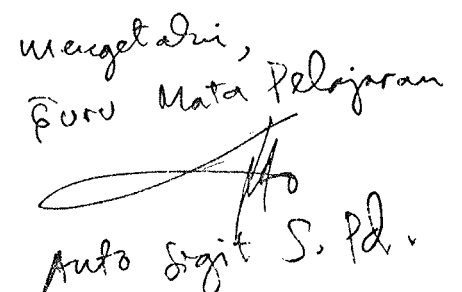 Mengetahui,
Guru Mata Pelajaran
Anto Sigit S. Pd.